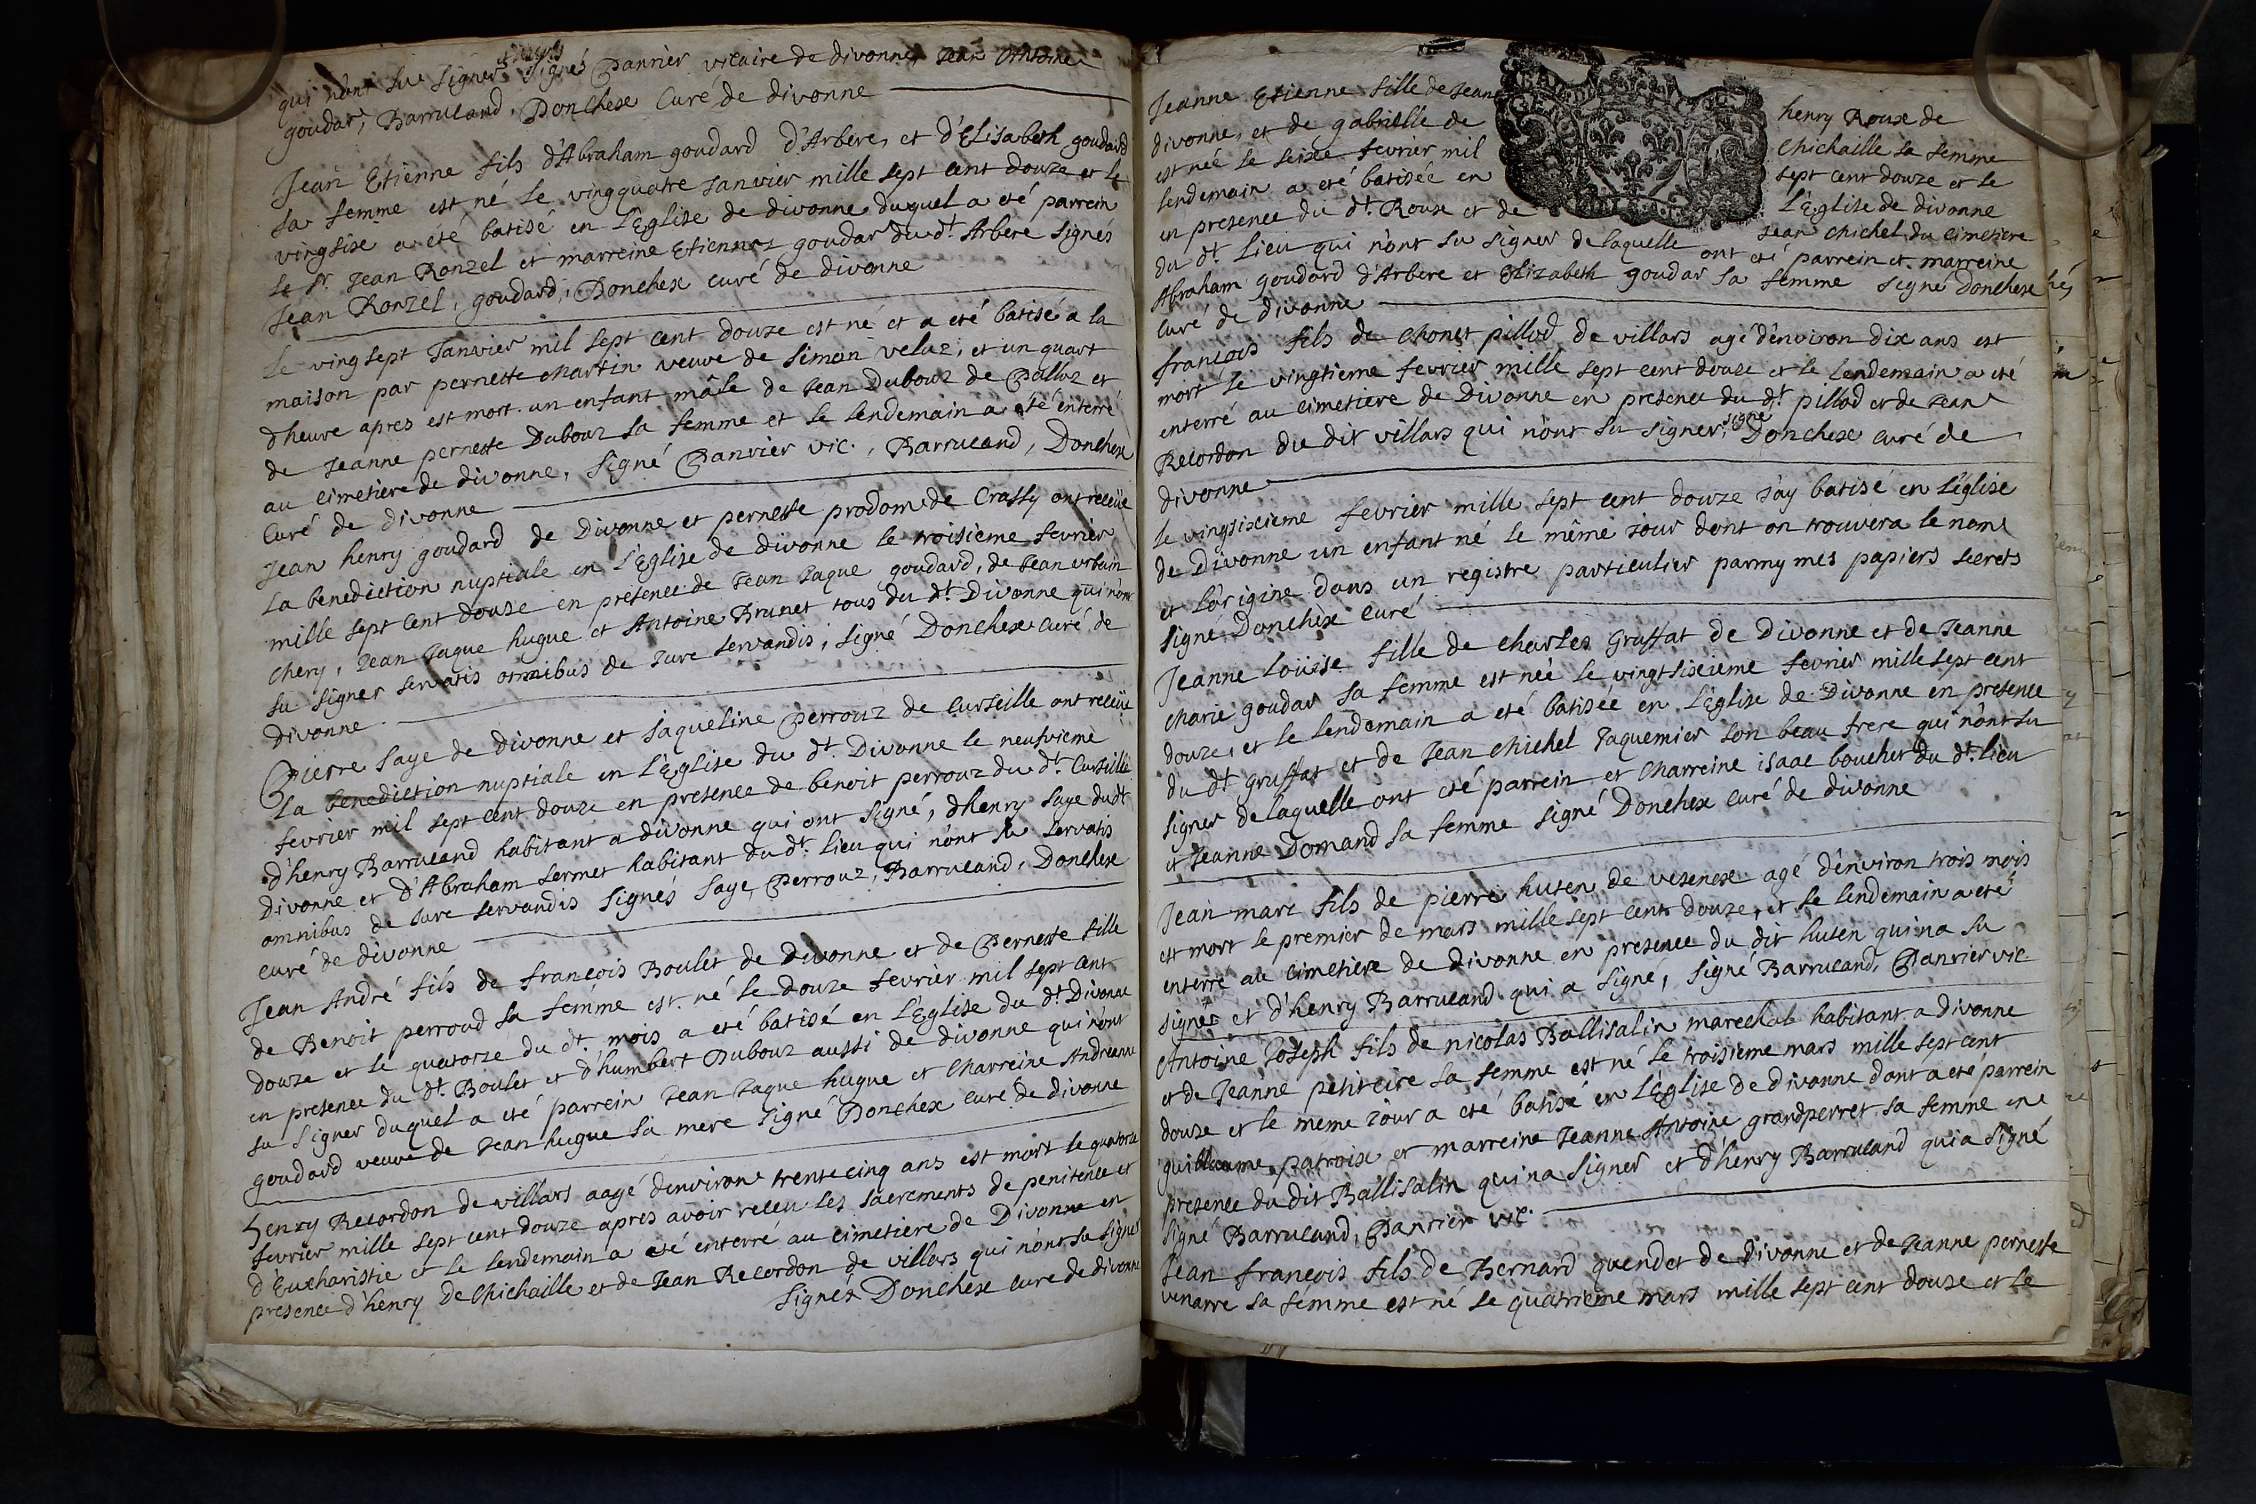 qui n'ont su signer signés Panrier vicaire de divonne, Jean Antoine
goudar, Barrucand, Donchex Curé de divonne
Jean Etienne fils d'Abraham goudard d'Arbere, et d'Elisabeth goudard
sa femme est né le vingquatre Janvier mille sept cent douze et le
vingsixe a eté batisé en l'Eglise de divonne duquel a eté parrein
le Sr. Jean Ronzel et marreine Etienne goudar du dt. Arbere signés
Jean Ronzel, goudard, Donchex curé de divonne
Le vingsept Janvier mil sept cent douze est né et a eté batisé a la
maison par pernette Martin veuve de simon veluz, et un quart
d'heure apres est mort un enfant mâle de Jean Dubouz de Polluz et
de Jeanne pernette Dubouz sa femme et le lendemain a eté enterré
au cimetiere de divonne, signé Panrier vic., Barrucand, Donchex
Curé de divonne
Jean henry goudard de Divonne et pernette prodom de Crassy ont receüe
La benediction nuptiale en l'Eglise de divonne le troisieme fevrier
mille sept cent douze en presence de Jean Jaque goudard, de Jean urbain
Chery, Jean Jaque hugue et Antoine Brunet tous du dt. Divonne qui n'ont
su signer servatis omnibus de Jure servandis, signé Donchex curé de
divonne
Pierre saye de divonne et Jaqueline Perrouz de Curseille ont receüe
La benediction nuptiale en l'Eglise du dt. Divonne le neufvieme
fevrier mil sept cent douze en presence de benoit perrouz du dt. Curseille
d'henry Barrucand habitant a divonne qui ont signé, d'henry saye du dt
Divonne et d'Abraham sermet habitant du dt. lieu qui n'ont su servatis
omnibus de Jure servandis signés saye, Perrouz, Barrucand, Donchex
curé de divonne
Jean André fils de françois Boulet de divonne et de Pernette fille
de Benoit perroud sa femme est né le douze fevrier mil sept cent
douze et le quatorze du dt. mois a eté batisé en l'Eglise du dt. Divonne
en presence du dt. Boulet et d'humbert Dubouz aussi de divonne qui n'ont
su signer duquel a eté parrein Jean Jaque hugue et Marreine Andreanne
goudard veuve de Jean hugue sa mere signé Donchex curé de divonne
henry Recordon de villars aagé d'environ trente cinq ans est mort le quatorze
fevrier mille sept cent douze apres avoir receu les sacrements de penitence et
d'Eucharistie et le lendemain a eté enterré au cimetiere de Divonne en
presence d'henry de Michaille et de Jean Recordon de villars qui n'ont su signer
signés Donchex curé de divonne
Jeanne Etienne fille de Jean henry Roux de
divonne, et de gabrielle de Michaille sa femme
est née le seize fevrier mil sept cent douze et le
lendemain a eté batisée en l'Eglise de divonne
en presence du dt. Roux et de Jean Michel du cimetiere
du dt. Lieu qui n'ont su signer de laquelle ont eté parrein et marreine
Abraham goudard d'Arbere et Elizabeth goudar sa femme signé Donchex
curé de divonne
françois fils de Monet pillod de villars agé d'environ dix ans est
mort le vingtieme fevrier mille sept cent douze et le lendemain a eté
enterré au cimetiere de Divonne en presence du dt. pillod et de Jean
Recordon du dit villars qui n'ont su signer, signé Donchex curé de
divonne
le vingsixieme fevrier mille sept cent douze J'ay batisé en l'église
de Divonne un enfant né le même jour dont on trouvera le nom
et l'origine dans un registre particulier parmy mes papiers secrets
signé Donchex curé
Jeanne Loüise fille de charles Gruffat de Divonne et de Jeanne
Marie goudar sa femme est née le vingtsixieme fevrier mille sept cent
douze, et le lendemain a eté batisée en l'Eglise de Divonne en presence
du dt. gruffat et de Jean Michel Jaquemier son beau frere qui n'ont su
signer de laquelle ont eté parrein et Marreine isaac bouchet du dt. lieu
et Jeanne Domand sa femme signé Donchex curé de divonne
Jean marc fils de pierre huten de vesenex agé d'environ trois mois
est mort le premier de mars mille sept cents douze, et le lendemain a eté
enterré au cimetiere de divonne en presence du dit huten qui na su
signer et d'henry Barrucand qui a signé, signé Barrucand, Panrier vic
Antoine Joseph fils de nicolas Ballisalin marechal habitant a divonne
et de Jeanne petitcire sa femme est né le troisieme mars mille sept cent
douze et le meme jour a eté batisé en l'Eglise de divonne dont a eté parrein
guillaume patroix et marreine Jeanne Antoine grandperret sa femme en
presence du dit Ballisalin qui na signer et d'henry Barrucand qui a signé
signé Barrucand, Panrier vic.
Jean françois fils de Bernard quendet de Divonne et de Jeanne pernette
venarre sa femme est né le quatrieme mars mille sept cent douze et le